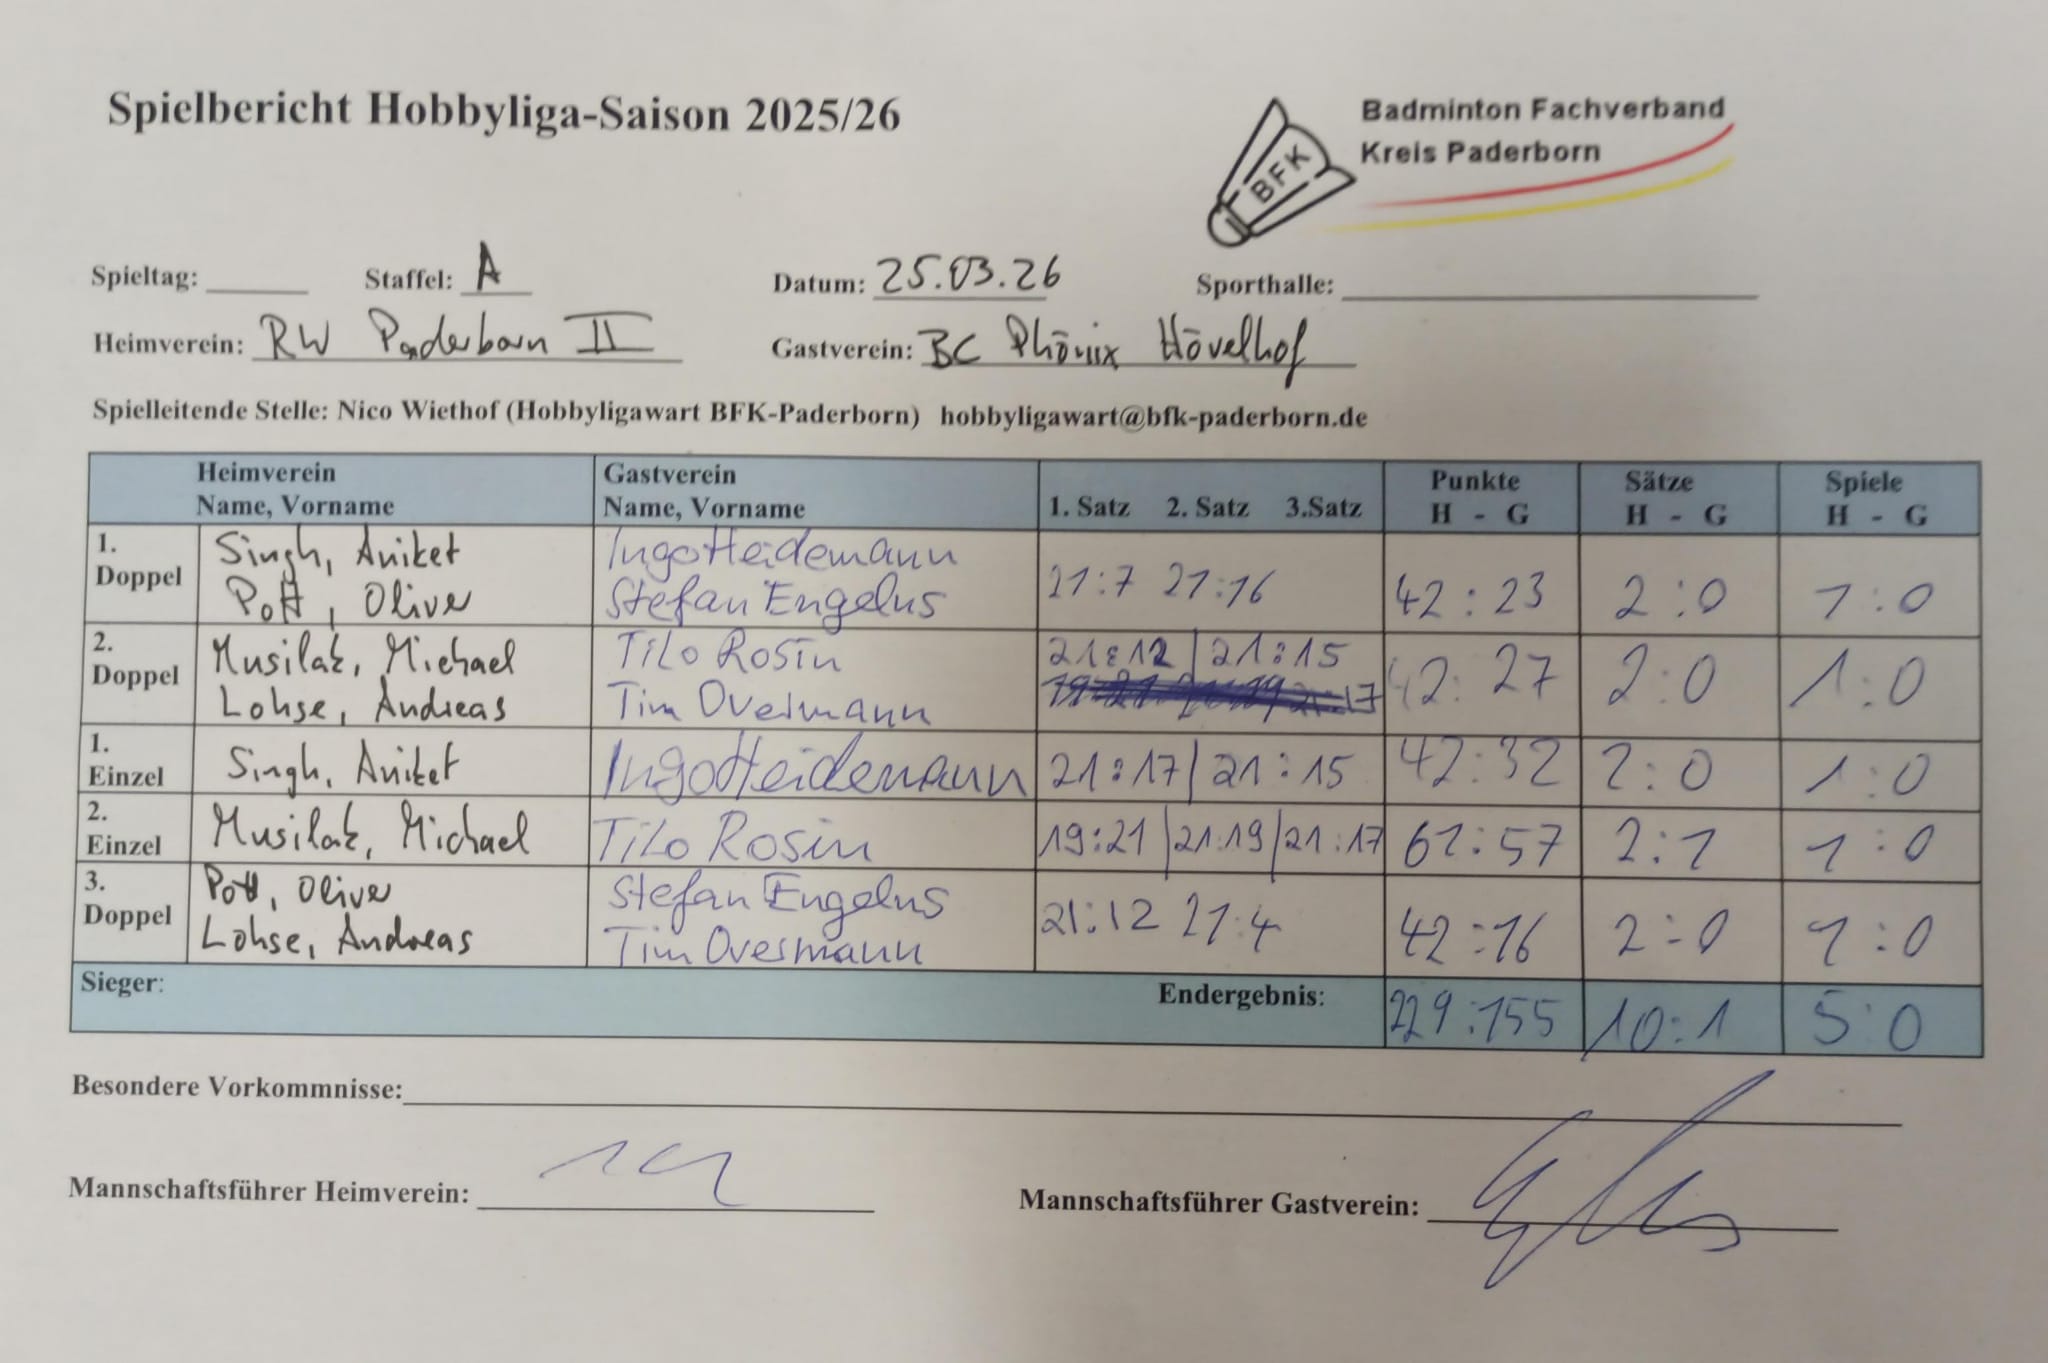 Spielbericht Hobbyliga-Saison 2025/26
Badminton Fachverband
Kreis Paderborn
BFK
Spieltag: Staffel: A Datum: 25.03.26 Sporthalle:
Heimverein: RW Paderborn II Gastverein: BC Phönix Hövelhof
Spielleitende Stelle: Nico Wiethof (Hobbyligawart BFK-Paderborn) hobbyligawart@bfk-paderborn.de
Heimverein Gastverein Punkte Sätze Spiele
Name, Vorname Name, Vorname 1. Satz 2. Satz 3.Satz H - G H - G H - G
1. Doppel Singh, Aniket Ingo Heidemann
Pott, Oliver Stefan Engelns 21:7 21:16 42:23 2:0 1:0
2. Doppel Musilak, Michael Tilo Rosin 21:12 | 21:15 42:27 2:0 1:0
Lohse, Andreas Tim Overmann
1. Einzel Singh, Aniket Ingo Heidemann 21:17 | 21:15 42:32 2:0 1:0
2. Einzel Musilak, Michael Tilo Rosin 19:21 | 21:19 | 21:17 61:57 2:1 1:0
3. Doppel Pott, Oliver Stefan Engelns
Lohse, Andreas Tim Overmann 21:12 21:4 42:16 2:0 1:0
Sieger: Endergebnis: 229:155 10:1 5:0
Besondere Vorkommnisse:
Mannschaftsführer Heimverein: Mannschaftsführer Gastverein: